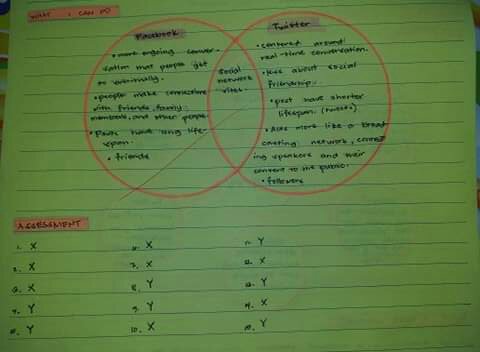 WHAT I CAN DO
Facebook
• more ongoing conver-
sation that people get
to eventually.
• people make connections
with friends, family
members, and other people.
• Posts have long life-
span.
• friends
social
network
sites.
Twitter
• centered around
real-time conversation.
• less about social
friendship.
• post have shorter
lifespan. (tweets)
• Acts more like a broad
casting network, connect
ing speakers and their
content to the public.
• followers
ASSESSMENT
1. X
2. X
3. X
4. Y
5. Y
6. X
7. X
8. Y
9. Y
10. X
11. Y
12. X
13. Y
14. X
15. Y